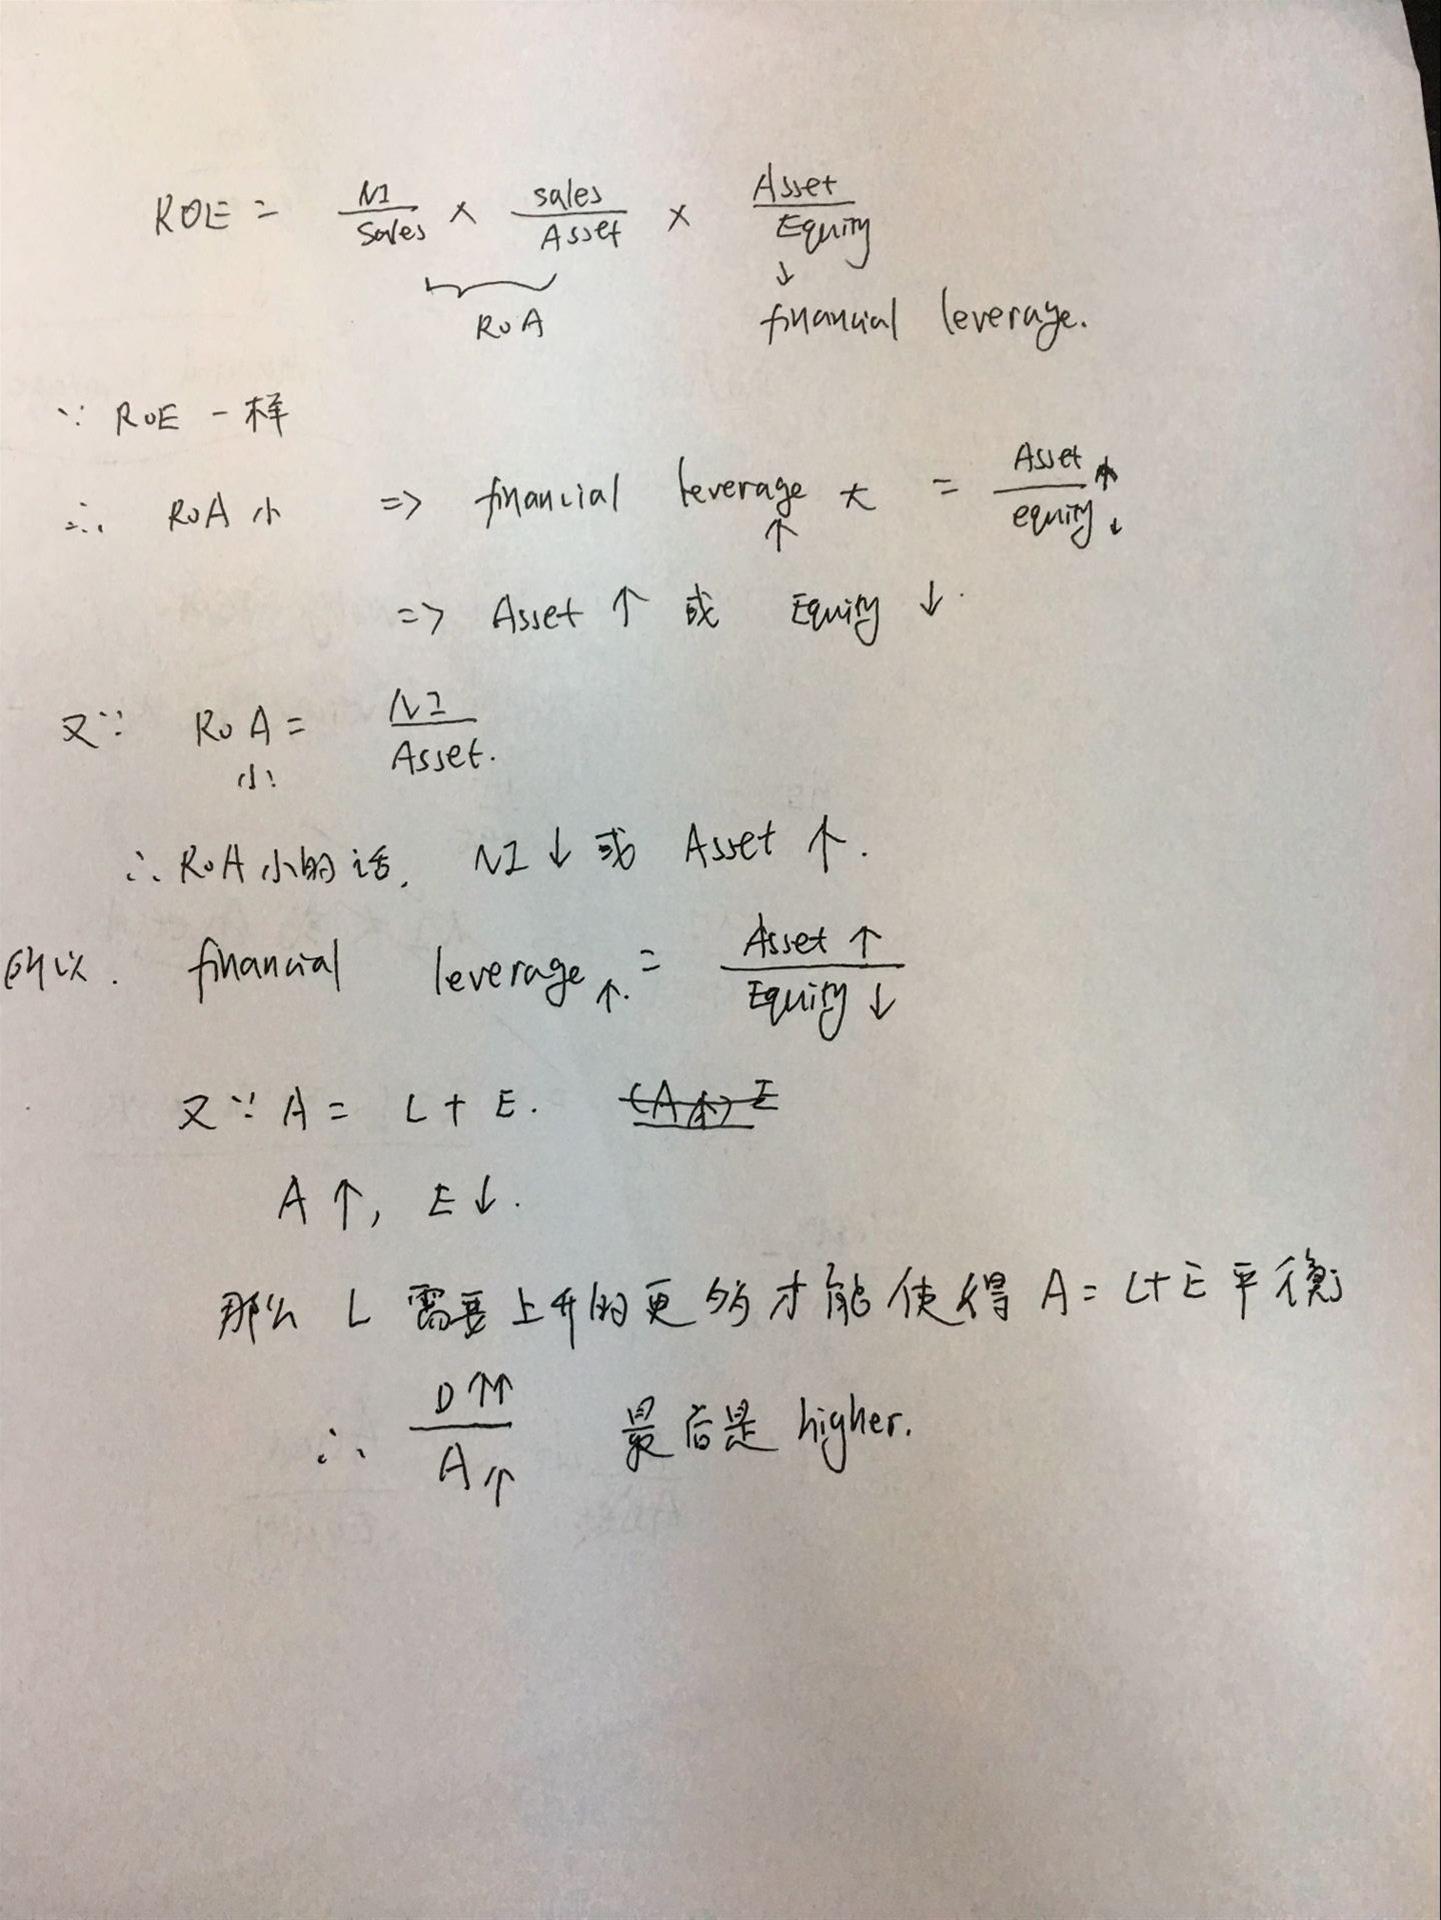 ROE = NI/Sales × sales/Asset × Asset/Equity
ROA ↓ financial leverage.
∵ ROE 一样
∴ ROA 小 => financial leverage↑ 大 = Asset↑/equity↓
=> Asset ↑ 或 Equity ↓.
又∵ ROA = NI/Asset.
小
∴ ROA 小的话, NI ↓ 或 Asset ↑.
所以. financial leverage↑. = Asset ↑/Equity ↓
又∵ A = L + E.
A ↑, E ↓.
那么 L 需要上升的更多才能使得 A = L+E 平衡
∴ D↑↑/A↑ 最后是 higher.